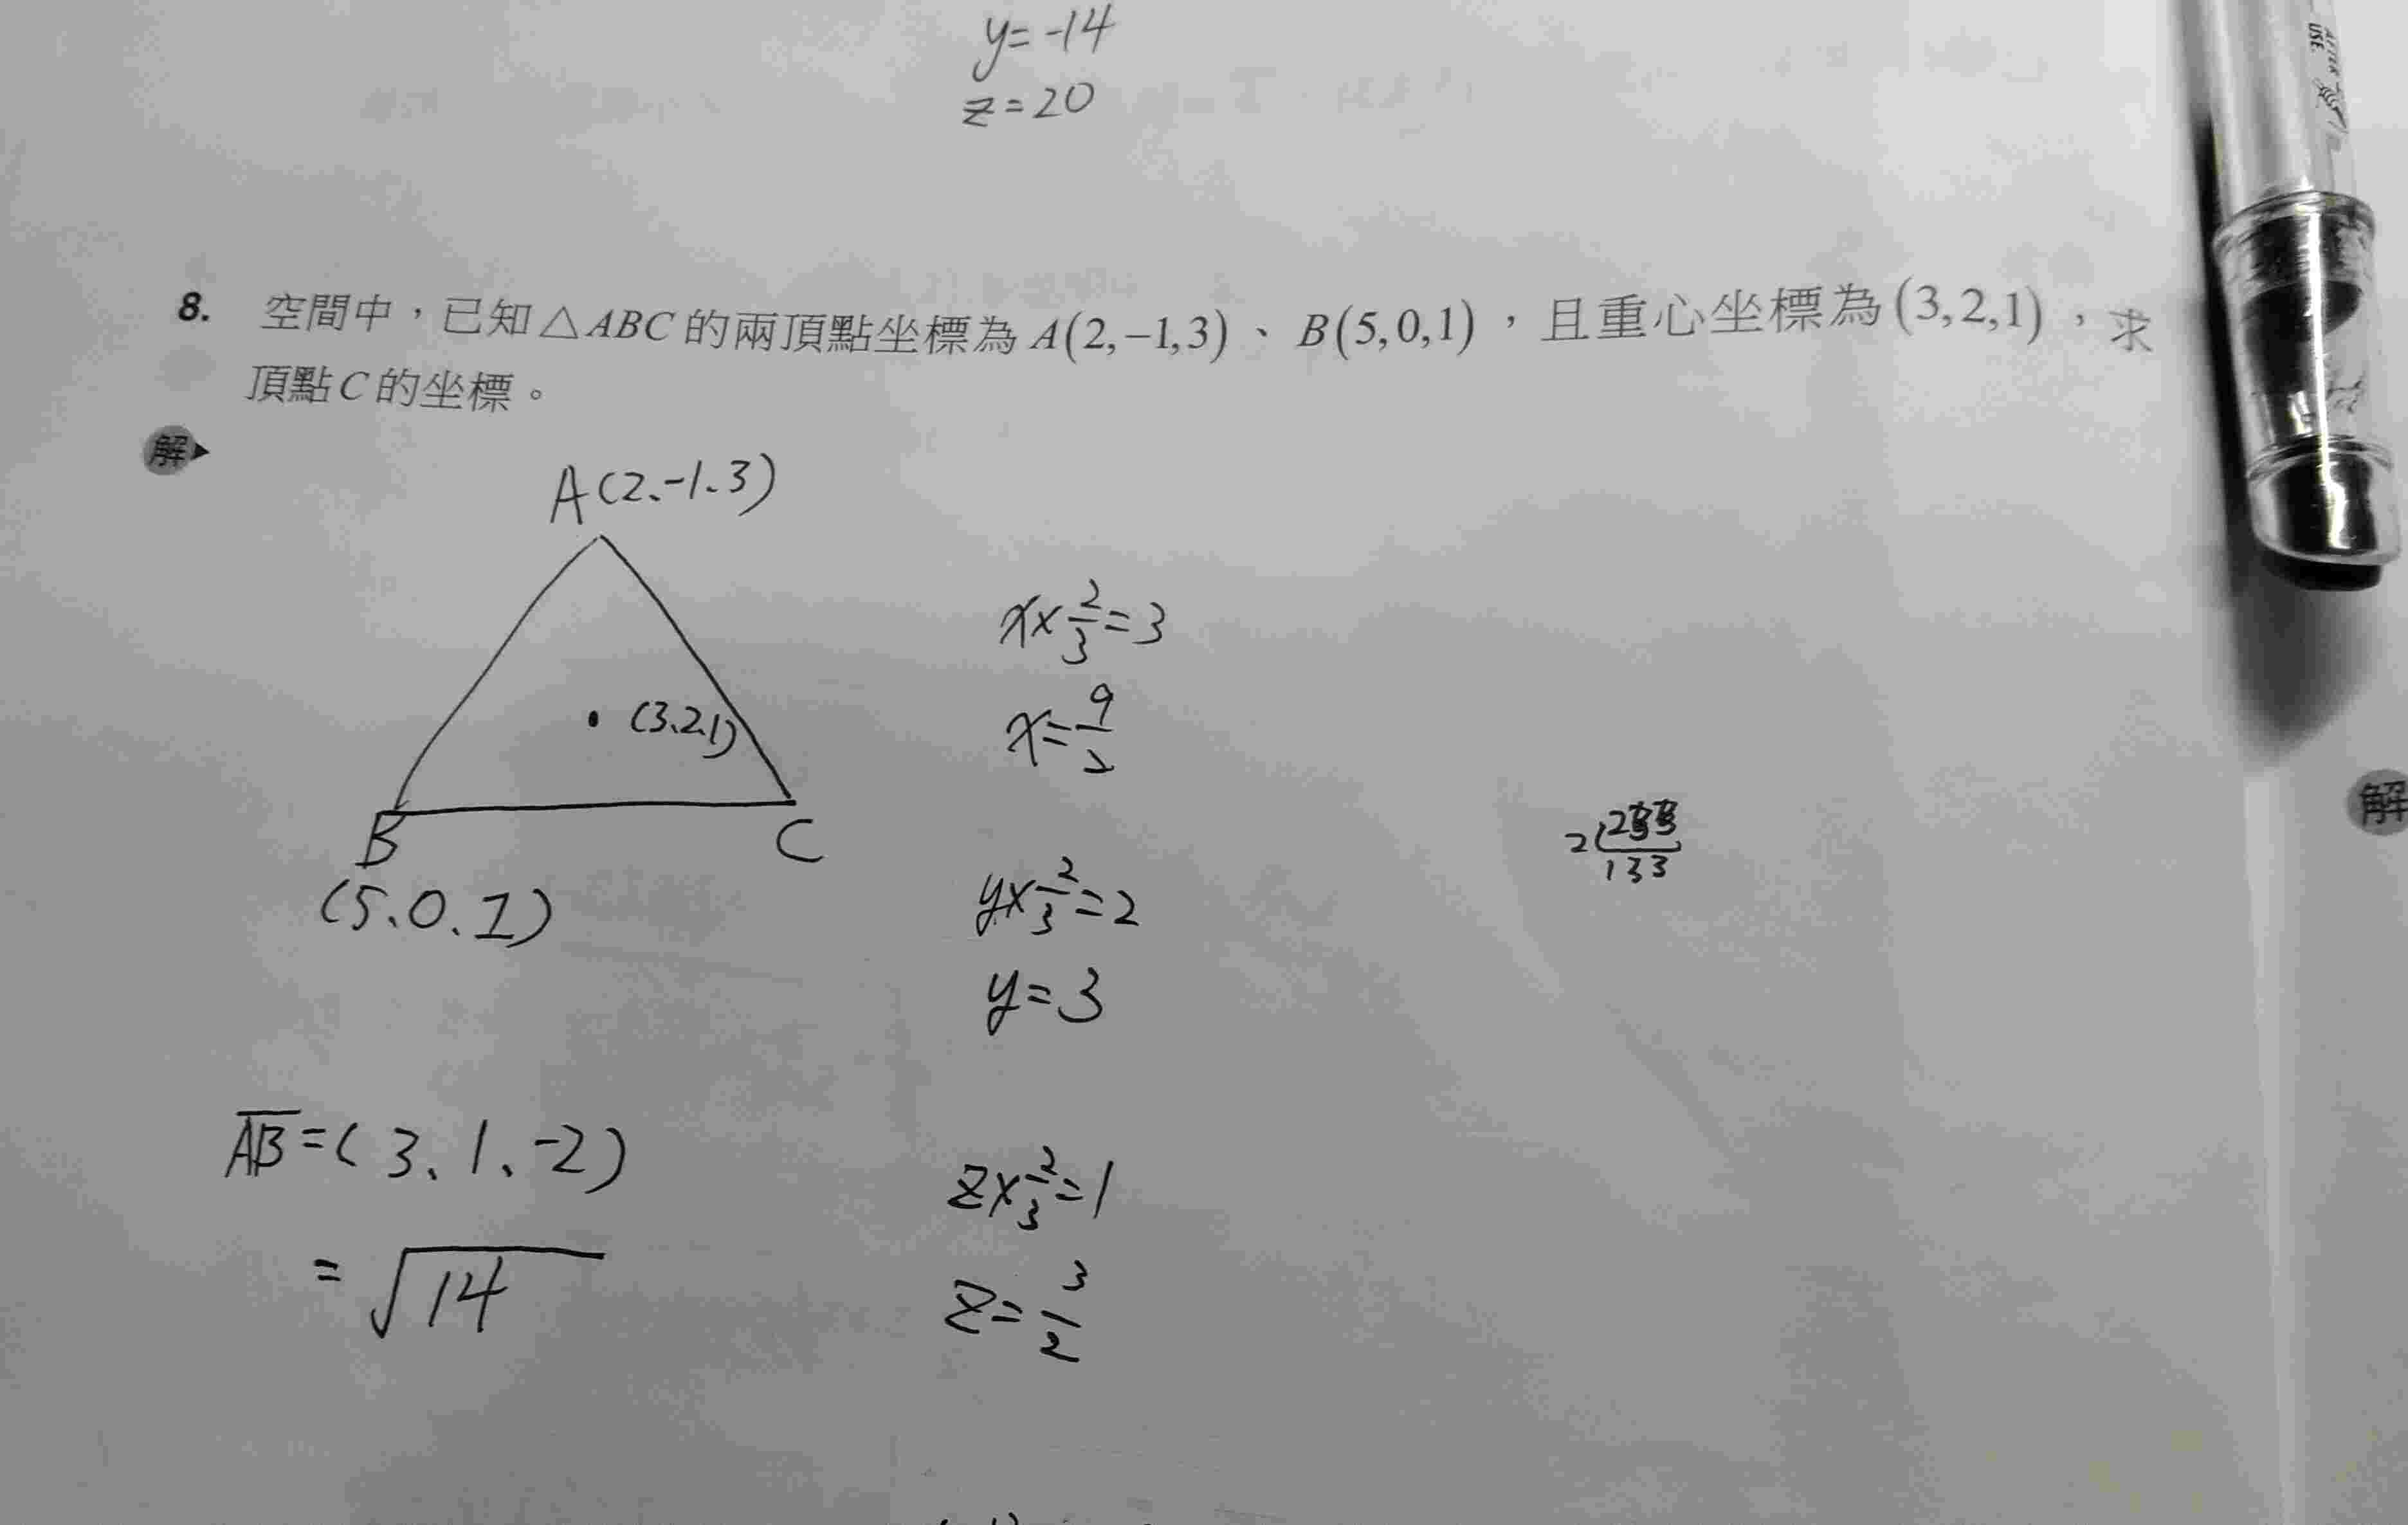 y=-14
z=20
8. 空間中，已知△ABC的兩頂點坐標為A(2,−1,3)、B(5,0,1)，且重心坐標為(3,2,1)，求
頂點C的坐標。
解
A(2、-1、3)
(3、2、1)
B
C
(5、0、1)
x×2/3=3
x=9/2
y×2/3=2
y=3
z×2/3=1
z=3/2
AB=(3、1、-2)
=√14
133
解
USE
AFTER